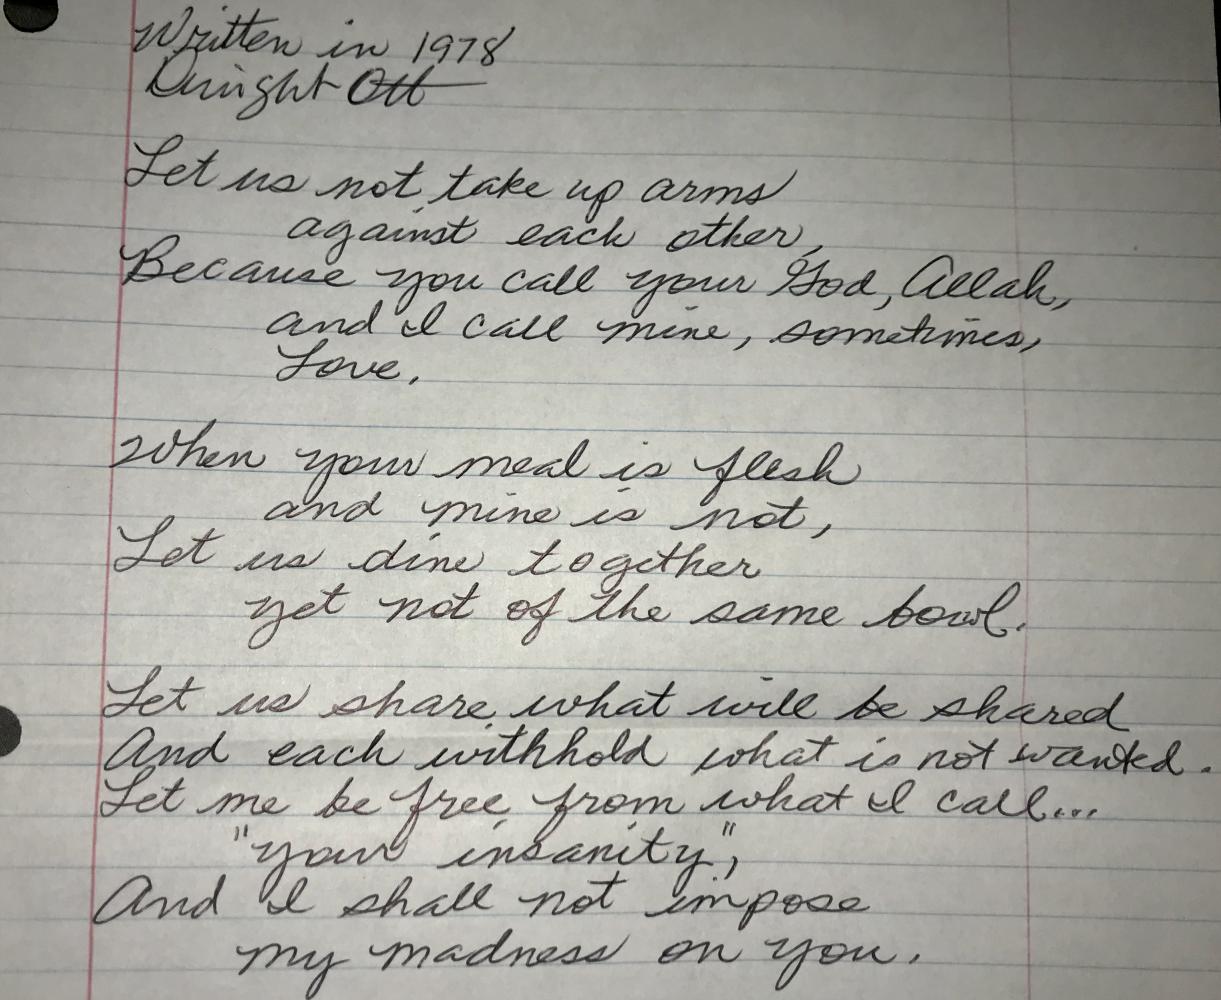 Written in 1978
Dwight Ott
Let us not take up arms
against each other,
Because you call your God, Allah,
and I call mine, sometimes,
Love.
When your meal is flesh
and mine is not,
Let us dine together
yet not of the same bowl.
Let us share what will be shared
And each withhold what is not wanted.
Let me be free from what I call...
"your insanity",
And I shall not impose
my madness on you.